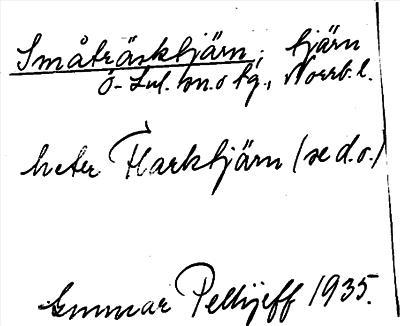 Småträsktjärn, tjärn
Ö-Lul. sn. o tg., Norrb. l.
heter Harktjärn (se d.o.)
Gunnar Pellijeff 1935.